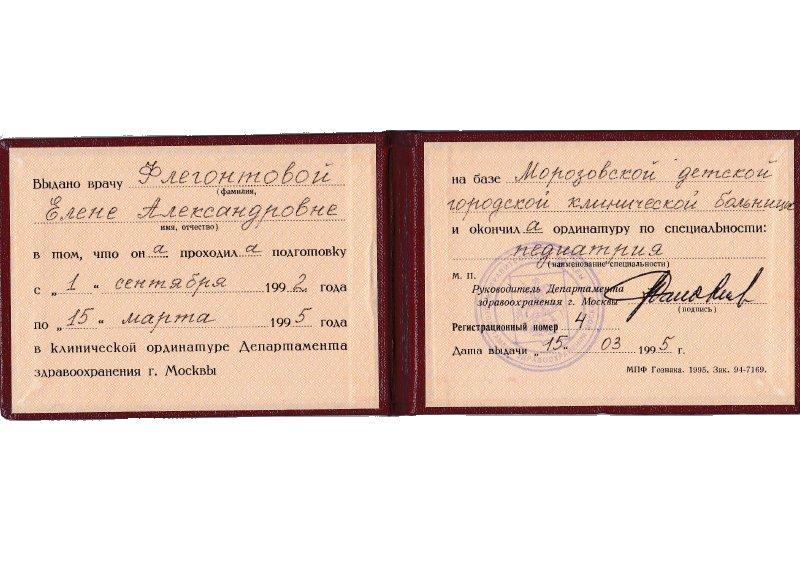 Выдано врачу Флегонтовой
(фамилия,
Елене Александровне
имя, отчество)
в том, что он а проходил а подготовку
с „ 1 “ сентября 199 2 года
по „ 15 “ марта 199 5 года
в клинической ординатуре Департамента
здравоохранения г. Москвы
на базе Морозовской детской
городской клинической больницы
и окончил а ординатуру по специальности:
педиатрия
(наименование специальности)
М. П.
Руководитель Департамента
здравоохранения г. Москвы
(подпись)
Регистрационный номер 4
Дата выдачи „ 15 “ 03 199 5 г.
МПФ Гознака. 1995. Зак. 94-7169.